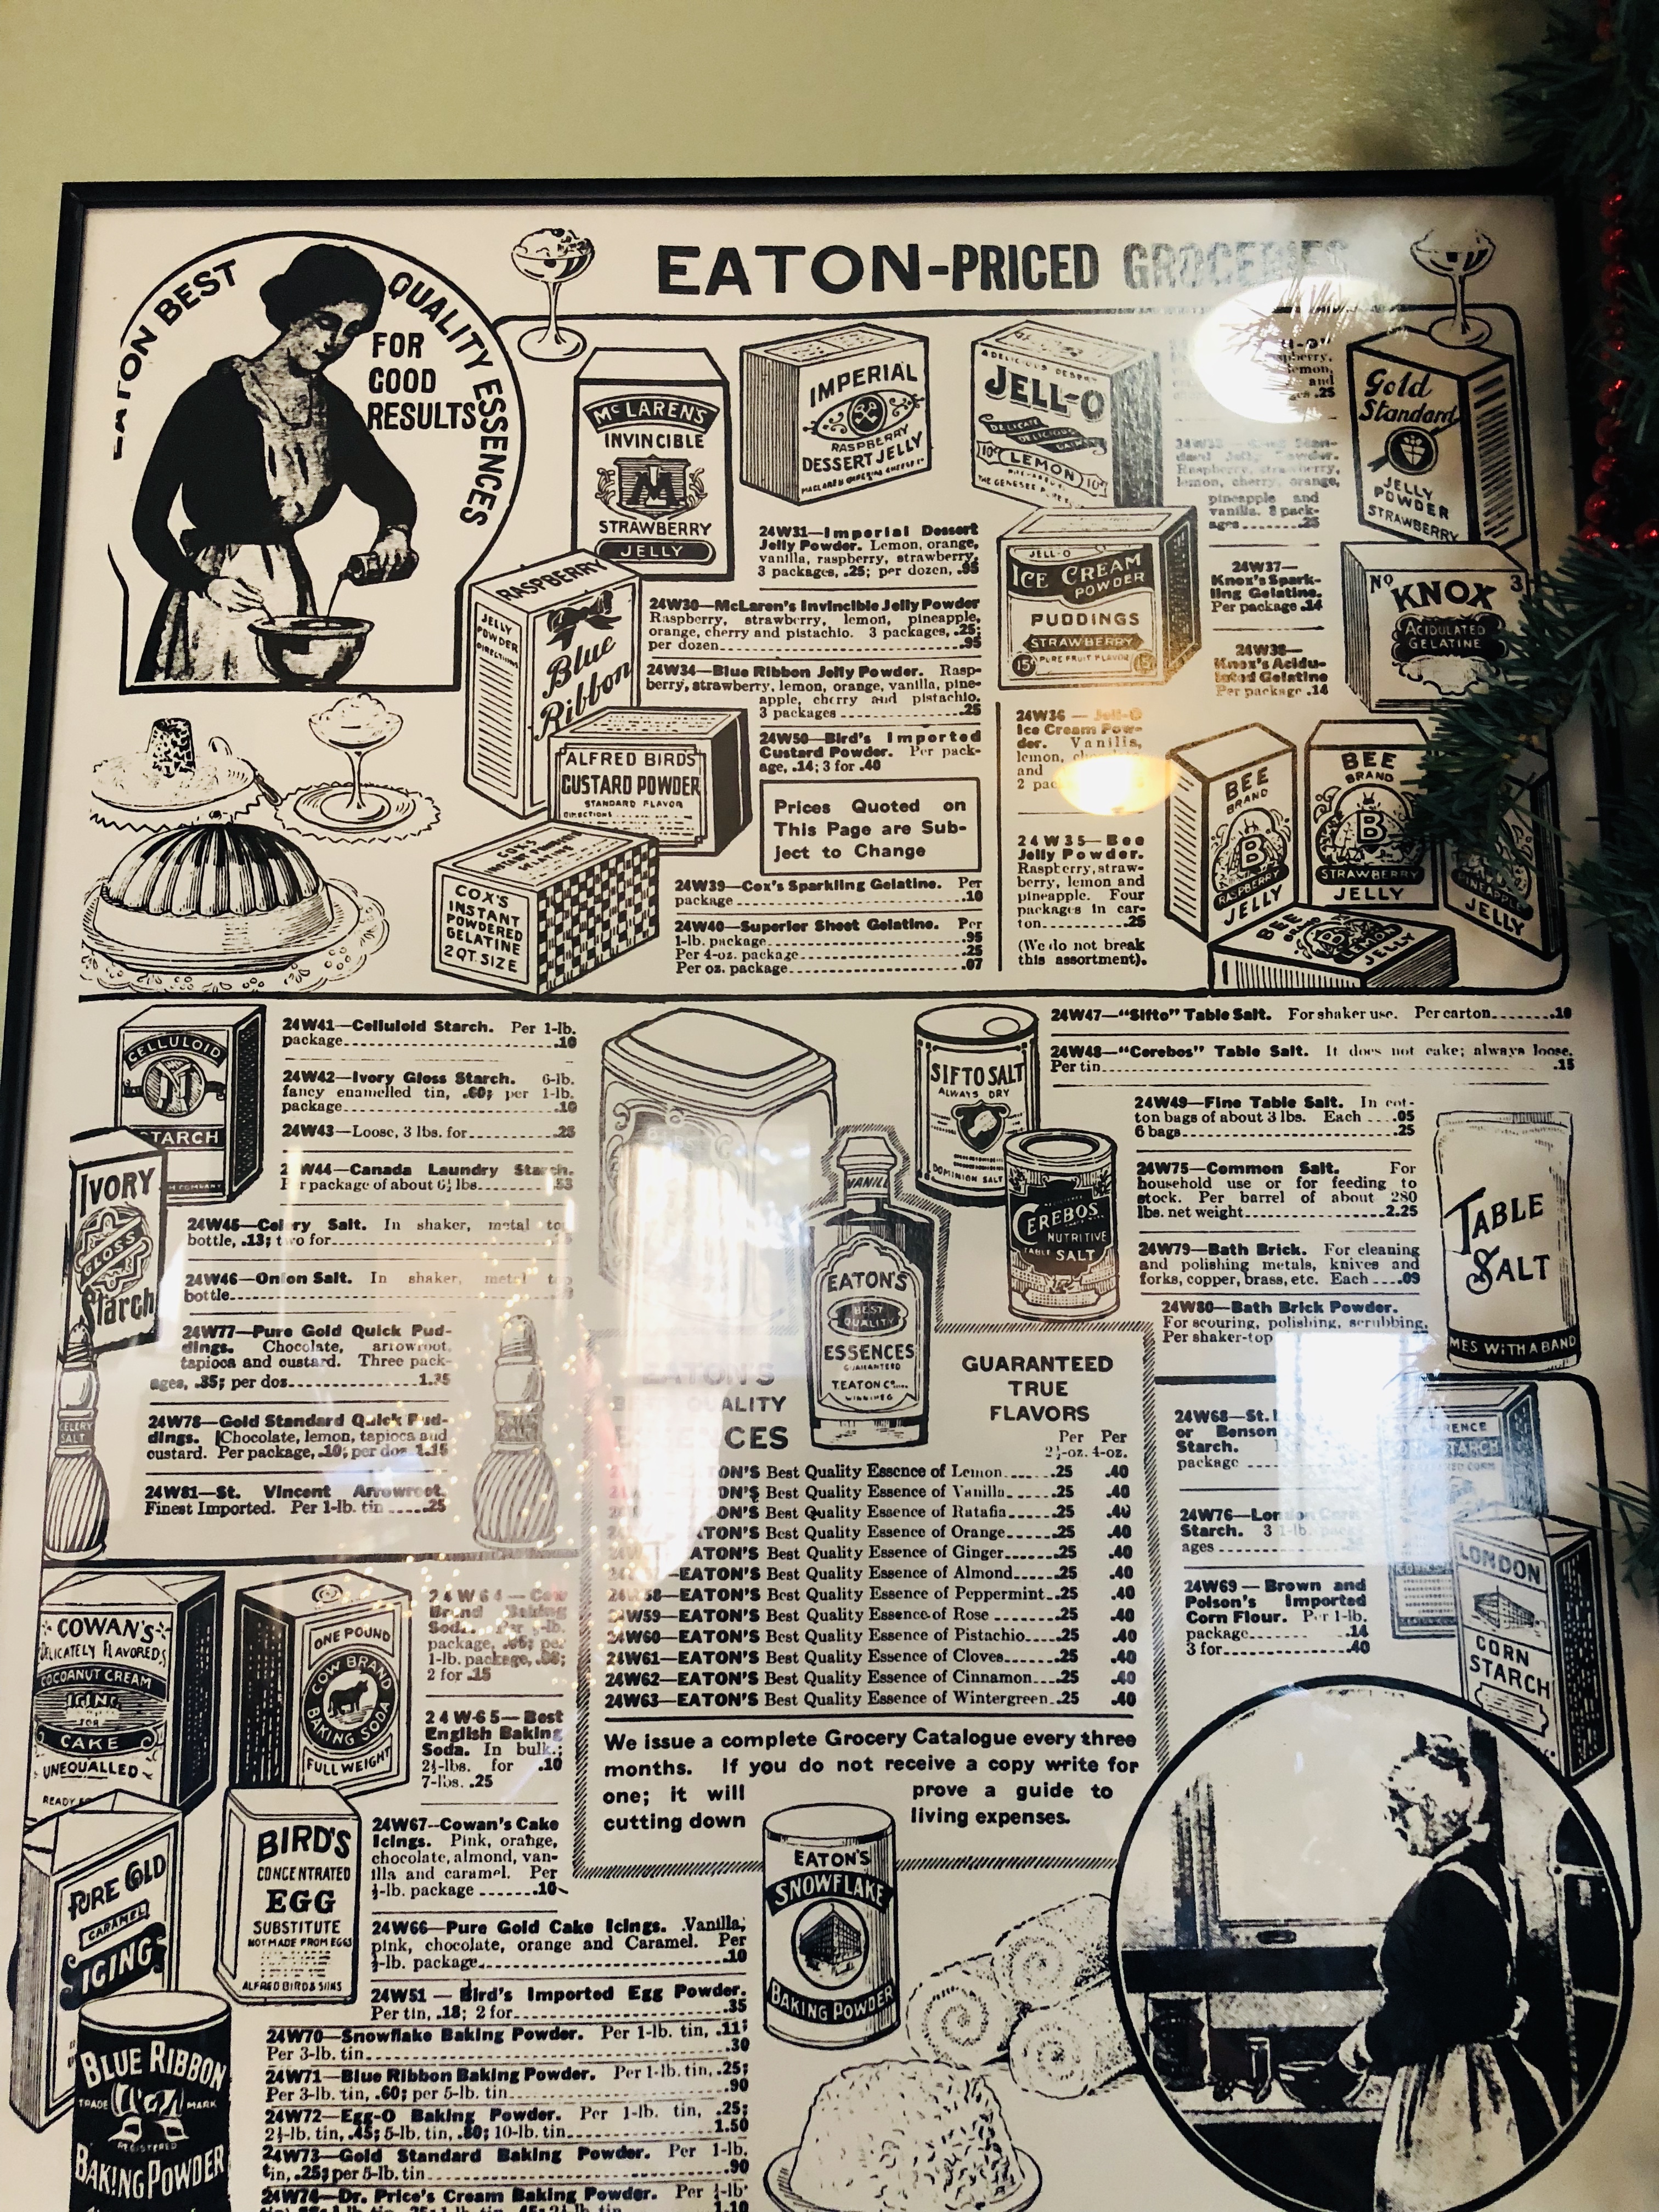 EATON-PRICED GROCERIES
EATON BEST QUALITY ESSENCES
FOR
GOOD
RESULTS
McLAREN'S
INVINCIBLE
STRAWBERRY
JELLY
IMPERIAL
RASPBERRY
DESSERT JELLY
A DELICIOUS DESSERT
JELL-O
DELICATE
DELICIOUS
10¢ LEMON 10¢
Gold
Standard
JELLY
POWDER
STRAWBERRY
24W31—Imperial Dessert
Jelly Powder. Lemon, orange,
vanilla, raspberry, strawberry,
3 packages, .25; per dozen, .95
24W30—McLaren's Invincible Jelly Powder
Raspberry, strawberry, lemon, pineapple,
orange, cherry and pistachio. 3 packages, .25;
per dozen .95
24W34—Blue Ribbon Jelly Powder. Rasp-
berry, strawberry, lemon, orange, vanilla, pine-
apple, cherry and pistachio.
3 packages .25
24W50—Bird's Imported
Custard Powder. Per pack-
age, .14; 3 for .40
Prices Quoted on
This Page are Sub-
ject to Change
24W39—Cox's Sparkling Gelatine. Per
package .10
24W40—Superior Sheet Gelatine. Per
1-lb. package .95
Per 4-oz. package .25
Per oz. package .07
RASPBERRY
JELLY
POWDER
DIRECTIONS
Blue
Ribbon
ALFRED BIRD'S
CUSTARD POWDER
STANDARD FLAVOR
DIRECTIONS
COX'S
INSTANT
POWDERED
GELATINE
2 QT. SIZE
JELL-O
ICE CREAM
POWDER
PUDDINGS
STRAWBERRY
15¢ PURE FRUIT FLAVOR
Raspberry, strawberry,
lemon, cherry, orange,
pineapple and
vanilla. 3 pack-
ages .25
24W37—
Knox's Spark-
ling Gelatine.
Per package .14
24W38—
Knox's Acidu-
lated Gelatine
Per package .14
No KNOX 3
ACIDULATED
GELATINE
24W36—Jell-O
Ice Cream Pow-
der. Vanilla,
lemon,
and
24W35—Bee
Jelly Powder.
Raspberry, straw-
berry, lemon and
pineapple. Four
packages in car-
ton .25
(We do not break
this assortment).
BEE
BRAND
B
RASPBERRY
JELLY
BEE
BRAND
B
STRAWBERRY
JELLY
PINEAPPLE
JELLY
BEE
LEMON
JELLY
CELLULOID
STARCH
24W41—Celluloid Starch. Per 1-lb.
package .10
24W42—Ivory Gloss Starch. 6-lb.
fancy enamelled tin, .60; per 1-lb.
package .10
24W43—Loose, 3 lbs. for .25
24W44—Canada Laundry Starch.
Per package of about 6½ lbs. .53
24W45—Celery Salt. In shaker, metal top
bottle, .13; two for
24W46—Onion Salt. In shaker, metal top
bottle
24W77—Pure Gold Quick Pud-
dings. Chocolate, arrowroot,
tapioca and custard. Three pack-
ages, .35; per doz. 1.35
24W78—Gold Standard Quick Pud-
dings. Chocolate, lemon, tapioca and
custard. Per package, .10; per doz. 1.15
24W81—St. Vincent Arrowroot.
Finest Imported. Per 1-lb. tin .25
IVORY
GLOSS
Starch
CELERY
SALT
SIFTO SALT
ALWAYS DRY
DOMINION SALT
CEREBOS
NUTRITIVE
TABLE SALT
24W47—"Sifto" Table Salt. For shaker use. Per carton .10
24W48—"Cerebos" Table Salt. It does not cake; always loose.
Per tin .15
24W49—Fine Table Salt. In cot-
ton bags of about 3 lbs. Each .05
6 bags .25
24W75—Common Salt. For
household use or for feeding to
stock. Per barrel of about 280
lbs. net weight 2.25
24W79—Bath Brick. For cleaning
and polishing metals, knives and
forks, copper, brass, etc. Each .09
24W80—Bath Brick Powder.
For scouring, polishing, scrubbing.
Per shaker-top
TABLE
SALT
MES WITH A BAND
VANILLA
EATON'S
BEST
QUALITY
ESSENCES
GUARANTEED
T. EATON Co.
WINNIPEG
EATON'S
QUALITY
CES
GUARANTEED
TRUE
FLAVORS
Per Per
2½-oz. 4-oz.
TON'S Best Quality Essence of Lemon .25 .40
ON'S Best Quality Essence of Vanilla .25 .40
ON'S Best Quality Essence of Ratafia .25 .40
ATON'S Best Quality Essence of Orange .25 .40
EATON'S Best Quality Essence of Ginger .25 .40
—EATON'S Best Quality Essence of Almond .25 .40
24W58—EATON'S Best Quality Essence of Peppermint .25 .40
24W59—EATON'S Best Quality Essence of Rose .25 .40
24W60—EATON'S Best Quality Essence of Pistachio .25 .40
24W61—EATON'S Best Quality Essence of Cloves .25 .40
24W62—EATON'S Best Quality Essence of Cinnamon .25 .40
24W63—EATON'S Best Quality Essence of Wintergreen .25 .40
We issue a complete Grocery Catalogue every three
months. If you do not receive a copy write for
one; it will prove a guide to
cutting down living expenses.
24W68—St.
or Benson
Starch.
package
24W76—London Corn
Starch. 3 1-lb. pack-
ages
24W69—Brown and
Polson's Imported
Corn Flour. Per 1-lb.
package .14
3 for .40
LONDON
CORN
STARCH
COWAN'S
DELICATELY FLAVORED
COCOANUT CREAM
ICING
FOR
CAKE
UNEQUALLED
ONE POUND
COW BRAND
BAKING SODA
FULL WEIGHT
24W64—Cow
Brand Baking
Soda. Per ½-lb.
package, .05; per
1-lb. package, .08;
2 for .15
24W65—Best
English Baking
Soda. In bulk;
2½-lbs. for .10
7-lbs. .25
24W67—Cowan's Cake
Icings. Pink, orange,
chocolate, almond, van-
illa and caramel. Per
½-lb. package .10
24W66—Pure Gold Cake Icings. Vanilla,
pink, chocolate, orange and Caramel. Per
½-lb. package .10
24W51—Bird's Imported Egg Powder.
Per tin, .18; 2 for .35
24W70—Snowflake Baking Powder. Per 1-lb. tin, .11;
Per 3-lb. tin .30
24W71—Blue Ribbon Baking Powder. Per 1-lb. tin, .25;
Per 3-lb. tin, .60; per 5-lb. tin .90
24W72—Egg-O Baking Powder. Per 1-lb. tin, .25;
2½-lb. tin, .45; 5-lb. tin, .80; 10-lb. tin 1.50
24W73—Gold Standard Baking Powder. Per 1-lb.
tin, .25; per 5-lb. tin .90
24W74—Dr. Price's Cream Baking Powder. Per ½-lb.
1.10
PURE GOLD
CARAMEL
ICING
BIRD'S
CONCENTRATED
EGG
SUBSTITUTE
NOT MADE FROM EGGS
ALFRED BIRD & SONS
BLUE RIBBON
TRADE MARK
REGISTERED
BAKING POWDER
EATON'S
SNOWFLAKE
BAKING POWDER